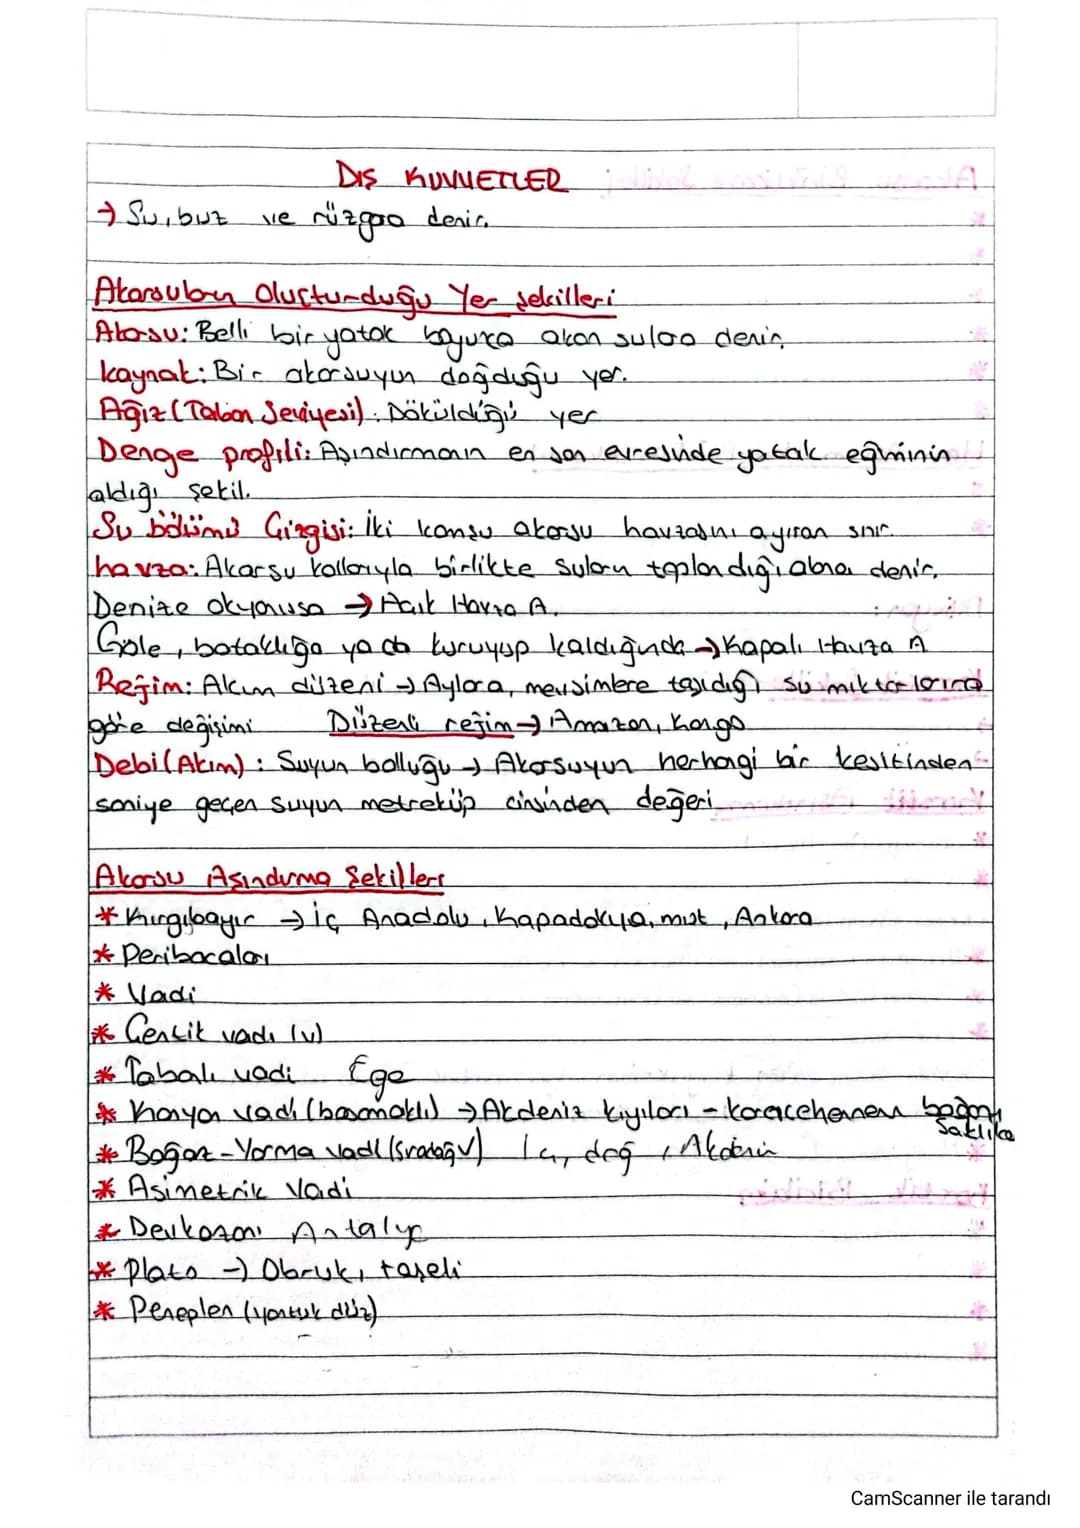 DIŞ KUVVETLER
→ Su, buz ve rüzgara denir.
Akarsuların Oluşturduğu Yer Şekilleri
Akarsu: Belli bir yatak boyunca akan sulara denir.
kaynak: Bir akarsuyun doğduğu yer.
Ağız (Taban Seviyesi): Döküldüğü yer
Denge profili: Aşındırmanın en son evresinde yatak eğiminin
aldığı şekil.
Su bölümü Çizgisi: İki komşu akarsu havzasını ayıran sınır.
havza: Akarsu kollarıyla birlikte suların toplandığı alana denir.
Denize okyanusa → Açık Havza A.
Göle, bataklığa ya da kuruyup kaldığında → Kapalı Havza A
Rejim: Akım düzeni → Aylara, mevsimlere taşıdığı su miktarlarına
göre değişimi Düzenli rejim → Amazon, Kongo
Debi (Akım): Suyun bolluğu → Akarsuyun herhangi bir kesitinden
saniye geçen suyun metreküp cinsinden değeri
Akarsu Aşındırma Şekilleri
* Kırgıbayır → İç Anadolu, Kapadokya, Ankara
* Peribacaları
* Vadi
* Çentik vadi (v)
* Tabalı vadi Ege
* Kanyon vadi (basamaklı) → Akdeniz kıyıları - boğazı
Saklıke
* Boğaz - Yarma vadi (Sıradağ V)
* Asimetrik Vadi
* Devkazanı Antalya
* Plato → Obruk, taşeli
* Peneplen (yontuk düz)
CamScanner ile tarandı